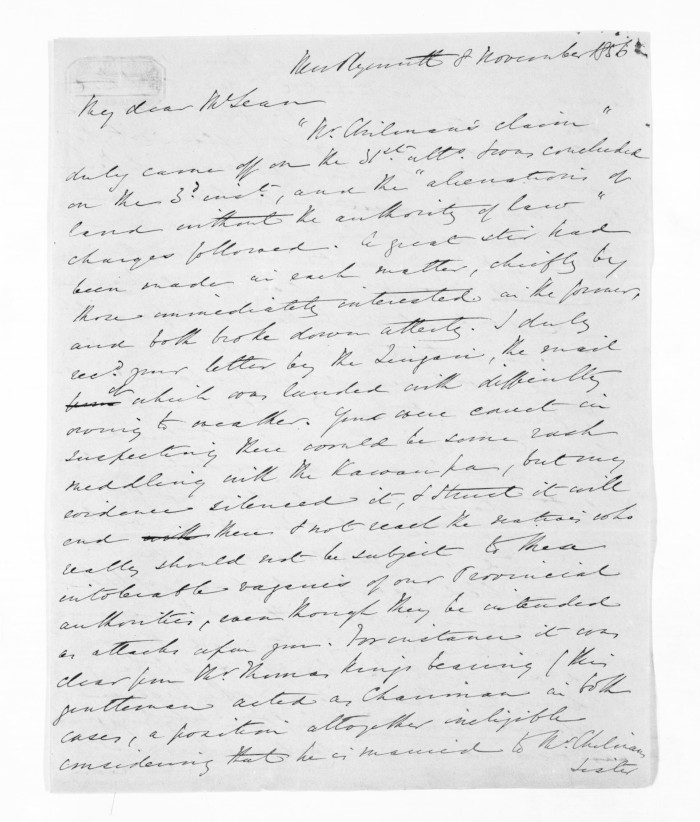 New Plymouth 8 November 1856
My dear McLean
"Mr. Chilman's claim"
duly came off on the 31st. ulto. & was concluded
on the 3d. inst., and the "alienations of
land without the authority of law"
charges followed. A great stir had
been made in each matter, chiefly by
those immediately interested in the former,
and both broke down utterly. I duly
recd. your letter by the Zingari, the mail
which was landed with difficulty
owing to weather. You were correct in
suspecting there would be some rash
meddling with the Kawau pa, but my
evidence silenced it, & I trust it will
end with there & not reach the natives who
really should not be subject to these
intolerable vagaries of our Provincial
authorities, even though they be intended
as attacks upon you. For instance it was
clear from Mr. Thomas King's bearing (this
gentleman acted as Chairman in both
cases, a position altogether ineligible
considering that he is married to Mr. Chilman's
sister